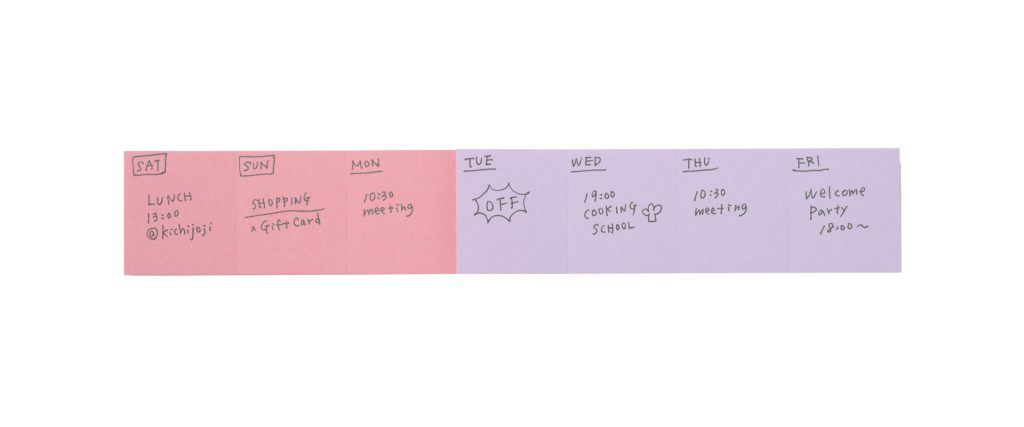 SAT
LUNCH
13:00
@kichijoji
SUN
SHOPPING
× Gift Card
MON
10:30
meeting
TUE
OFF
WED
19:00
COOKING
SCHOOL
THU
10:30
meeting
FRI
Welcome
Party
18:00〜